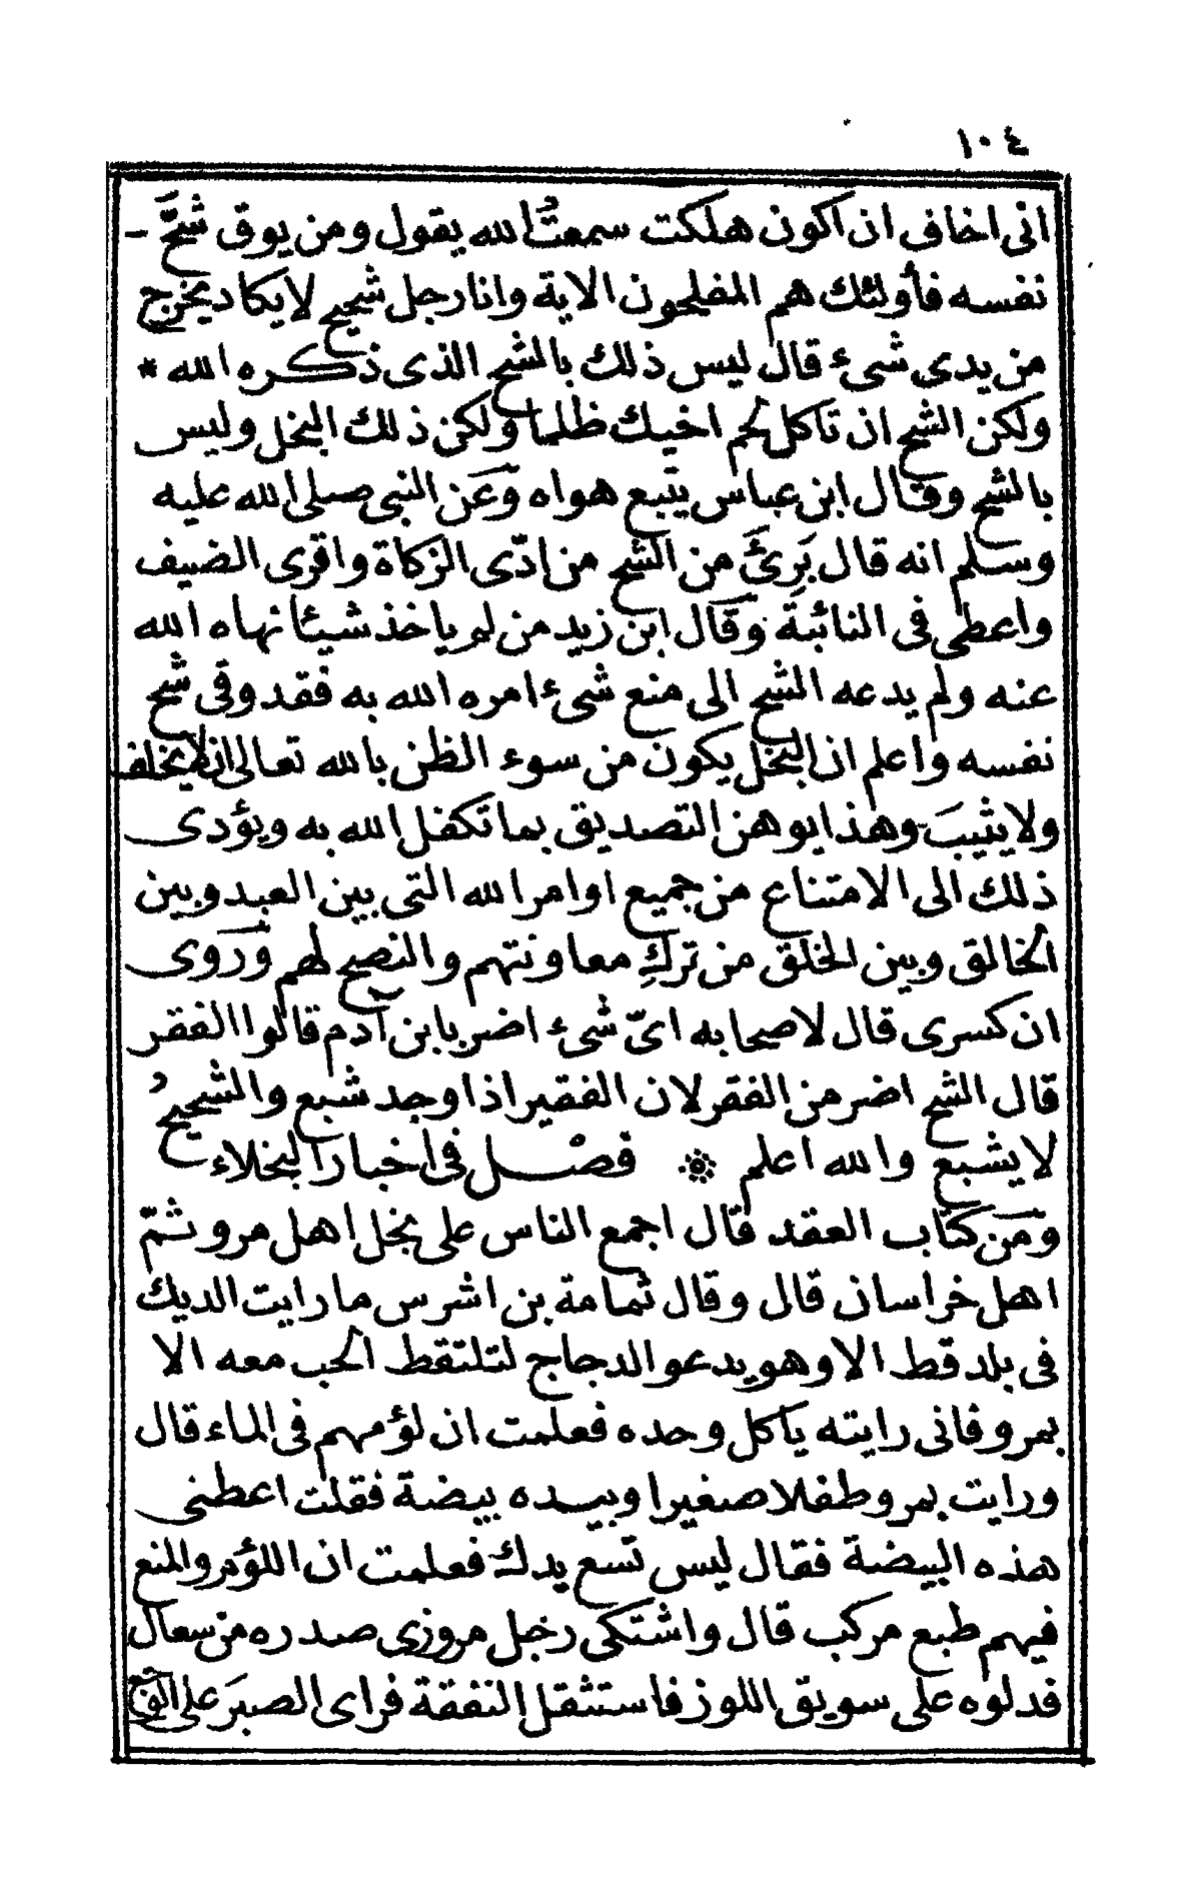 ١٠٤
انى اخاف ان اكون هلكت سمعتُ الله يقول ومن يوق شحَّ
نفسه فأولئك هم المفلحون الاية وانا رجل شحيح لا يكاد يخرج
من يدى شىء قال ليس ذلك بالشح الذى ذكره الله *
ولكن الشح ان تاكل لحم اخيك ظلما ولكن ذلك البخل وليس
بالشح وقال ابن عباس يتبع هواه وعن النبى صلى الله عليه
وسلم انه قال بَرِئَ من الشح من ادّى الزكاة واقرى الضيف
واعطى فى النائبة وقال ابن زيد من لم ياخذ شيئا نهاه الله
عنه ولم يدعه الشح الى منع شىء امره الله به فقد وقى شح
نفسه واعلم ان البخل يكون من سوء الظن بالله تعالى انه لا يخلف
ولا يثيب وهذا يوهن التصديق بما تكفل الله به ويؤدى
ذلك الى الامتناع من جميع اوامر الله التى بين العبد وبين
الخالق وبين الخلق من تركِ معاونتهم والنصح لهم وروى
ان كسرى قال لاصحابه اىّ شىء اضر بابن آدم قالوا الفقر
قال الشح اضر من الفقر لان الفقير اذا وجد شبع والشحيحُ
لا يشبع والله اعلم ۞ فصْل فى اخبار البخلاء
ومن كتاب العقد قال اجمع الناس على بخل اهل مرو ثمّ
اهل خراسان قال وقال ثمامة بن اشرس ما رايت الديك
فى بلد قط الا وهو يدعو الدجاج لتلتقط الحب معه الا
بمرو فانى رايته ياكل وحده فعلمت ان لؤمهم فى الماء قال
ورايت بمرو طفلا صغيرا وبيده بيضة فقلت اعطنى
هذه البيضة فقال ليس تسع يدك فعلمت ان اللؤم والمنع
فيهم طبع مركب قال واشتكى رجل مروزى صدره من سعال
فدلوه على سويق اللوز فاستثقل النفقة فراى الصبَر على الوجع